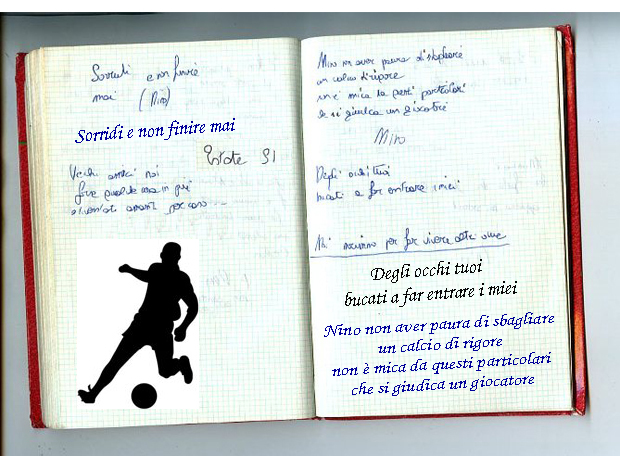 Sorridi e non finire
mai (Nino)
Sorridi e non finire mai
Estate 91
Vecchi amici noi
forse qualche cosa in più
diventati amanti per caso ...
Nino non aver paura di sbagliare
un calcio di rigore
non è mica da questi particolari
che si giudica un giocatore
Nino
Degli occhi tuoi
bucati a far entrare i miei
per far vivere altre
Degli occhi tuoi
bucati a far entrare i miei
Nino non aver paura di sbagliare
un calcio di rigore
non è mica da questi particolari
che si giudica un giocatore